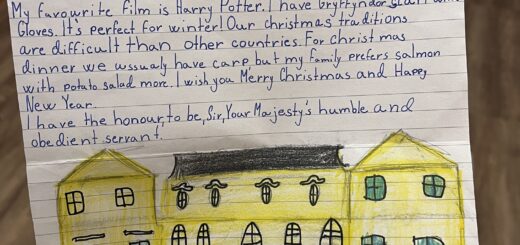 My favourite film is Harry Potter. I have Gryffyndor scarf and
Gloves. It's perfect for winter! Our christmas traditions
are difficult than other countries. For Christmas
dinner we ussualy have carp but my family prefers salmon
with potato salad more. I wish you Merry Christmas and Happy
New Year.
I have the honour, to be, Sir, Your Majesty's humble and
obedient servant.